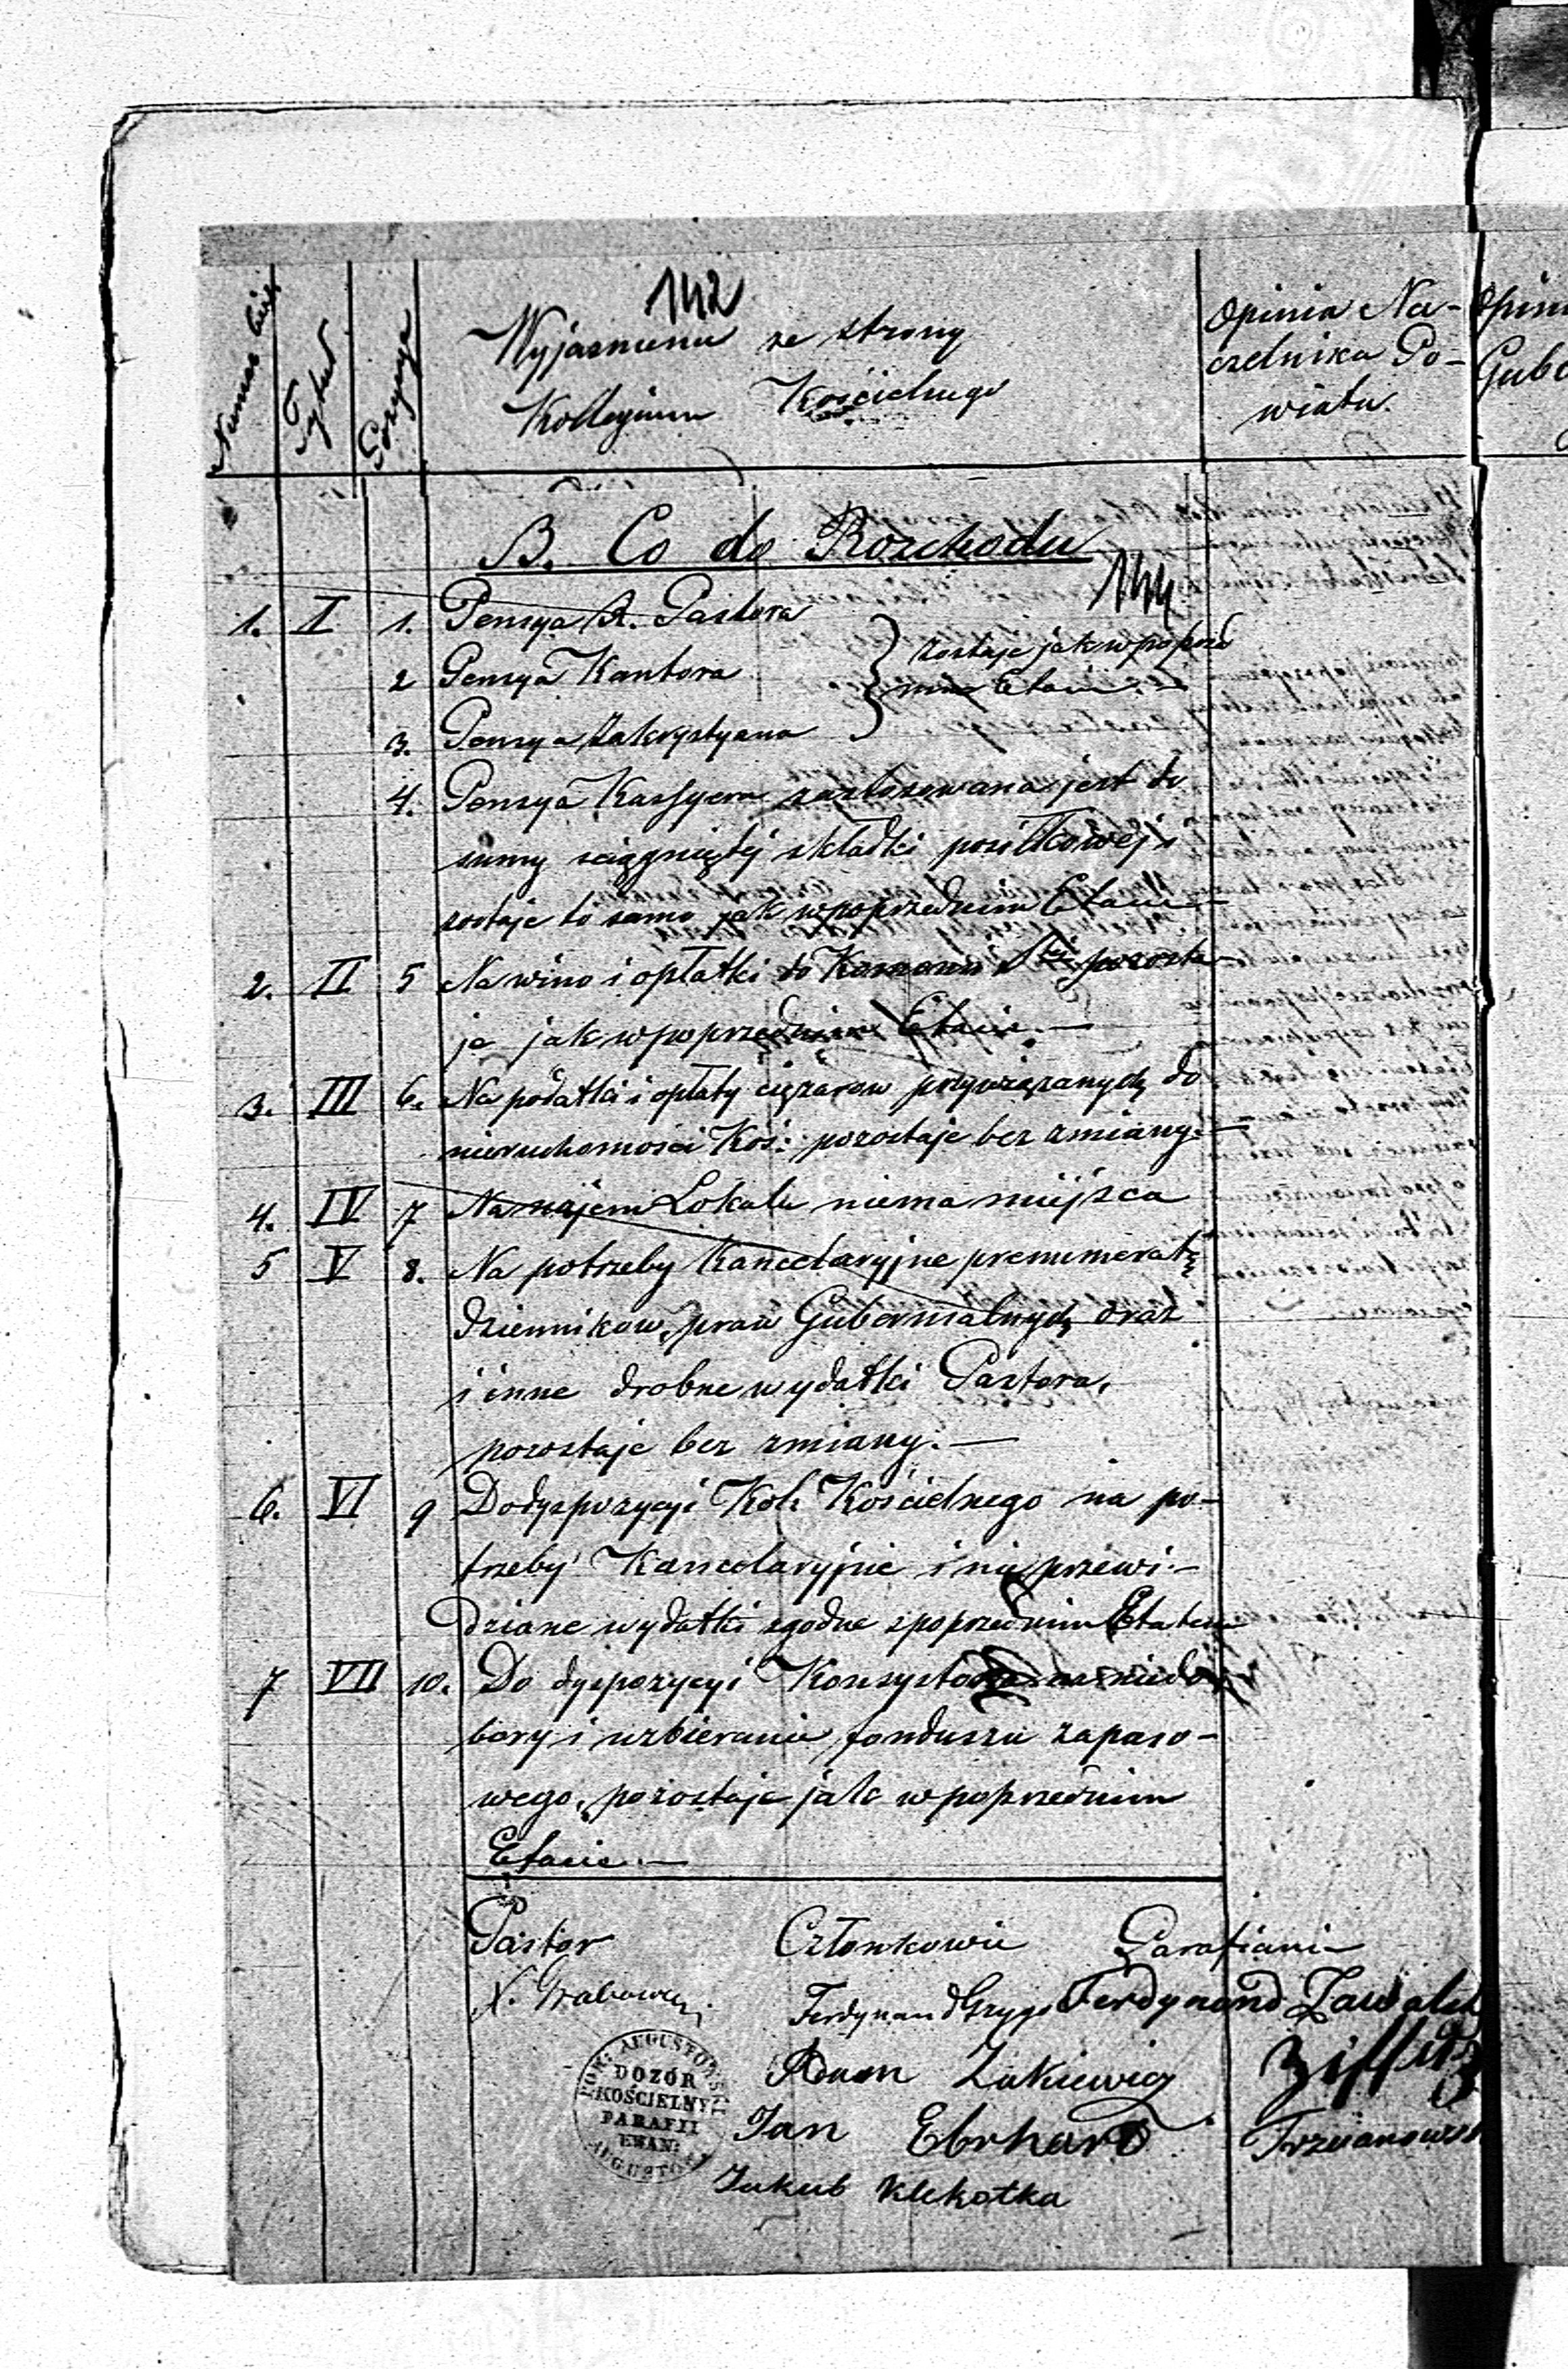 142
Numer bież
Tytuł
Pozycya
Wyjasnienie ze strony
Kollegium Kościelnego
Opinia Na-
czelnika Po-
wiatu.
Opin
Gube
B. Co do Rozchodu
144
1. I 1. Pensya X. Pastora
2 Pensya Kantora
zostaje jak w poprzed
nim Etacie. —
3. Pensya Zakrystyana
4. Pensya Kassyera zastosowana jest do
sumy sciągniętej składki posiłkowej i
zostaje to samo jak w poprzednim Etacie —
2. II 5 Na wino i opłatki do Kommunii Stej pozosta-
je jak w poprzednim Etacie. —
3. III 6. Na podatki i opłaty ciężarow przywiązanych do
nieruchomości Koś: pozostaje bez zmiany. —
4. IV 7 Na najem Lokalu niema miejsca
5 V 8. Na potrzeby Kancelaryjne prenumeratę
Dzienników praw Gubernialnych oraz
i inne drobne wydatki Pastora,
pozostaje bez zmiany. —
6. VI 9 Do dyspozycyi Kol. Kościelnego na po-
trzeby Kancelaryjne i nie przewi-
dziane wydatki zgodne z poprzednim Etatem
7 VII 10. Do dyspozycyi Konsystorza na niedo-
bory i uzbieranie funduszu zapaso-
wego, pozostaje jak w poprzednim
Etacie. —
Pastor Członkowie Parafianie
X. Grabowski Ferdynand Grygo Ferdynand Zawalski
Adam Żukiewicz
Jan Eberhard Trzcianowski
Jakub Klekotka
POW. AUGUSTOWSKI
DOZÓR
KOŚCIELNY
PARAFII
EWAN:
AUGUSTÓW